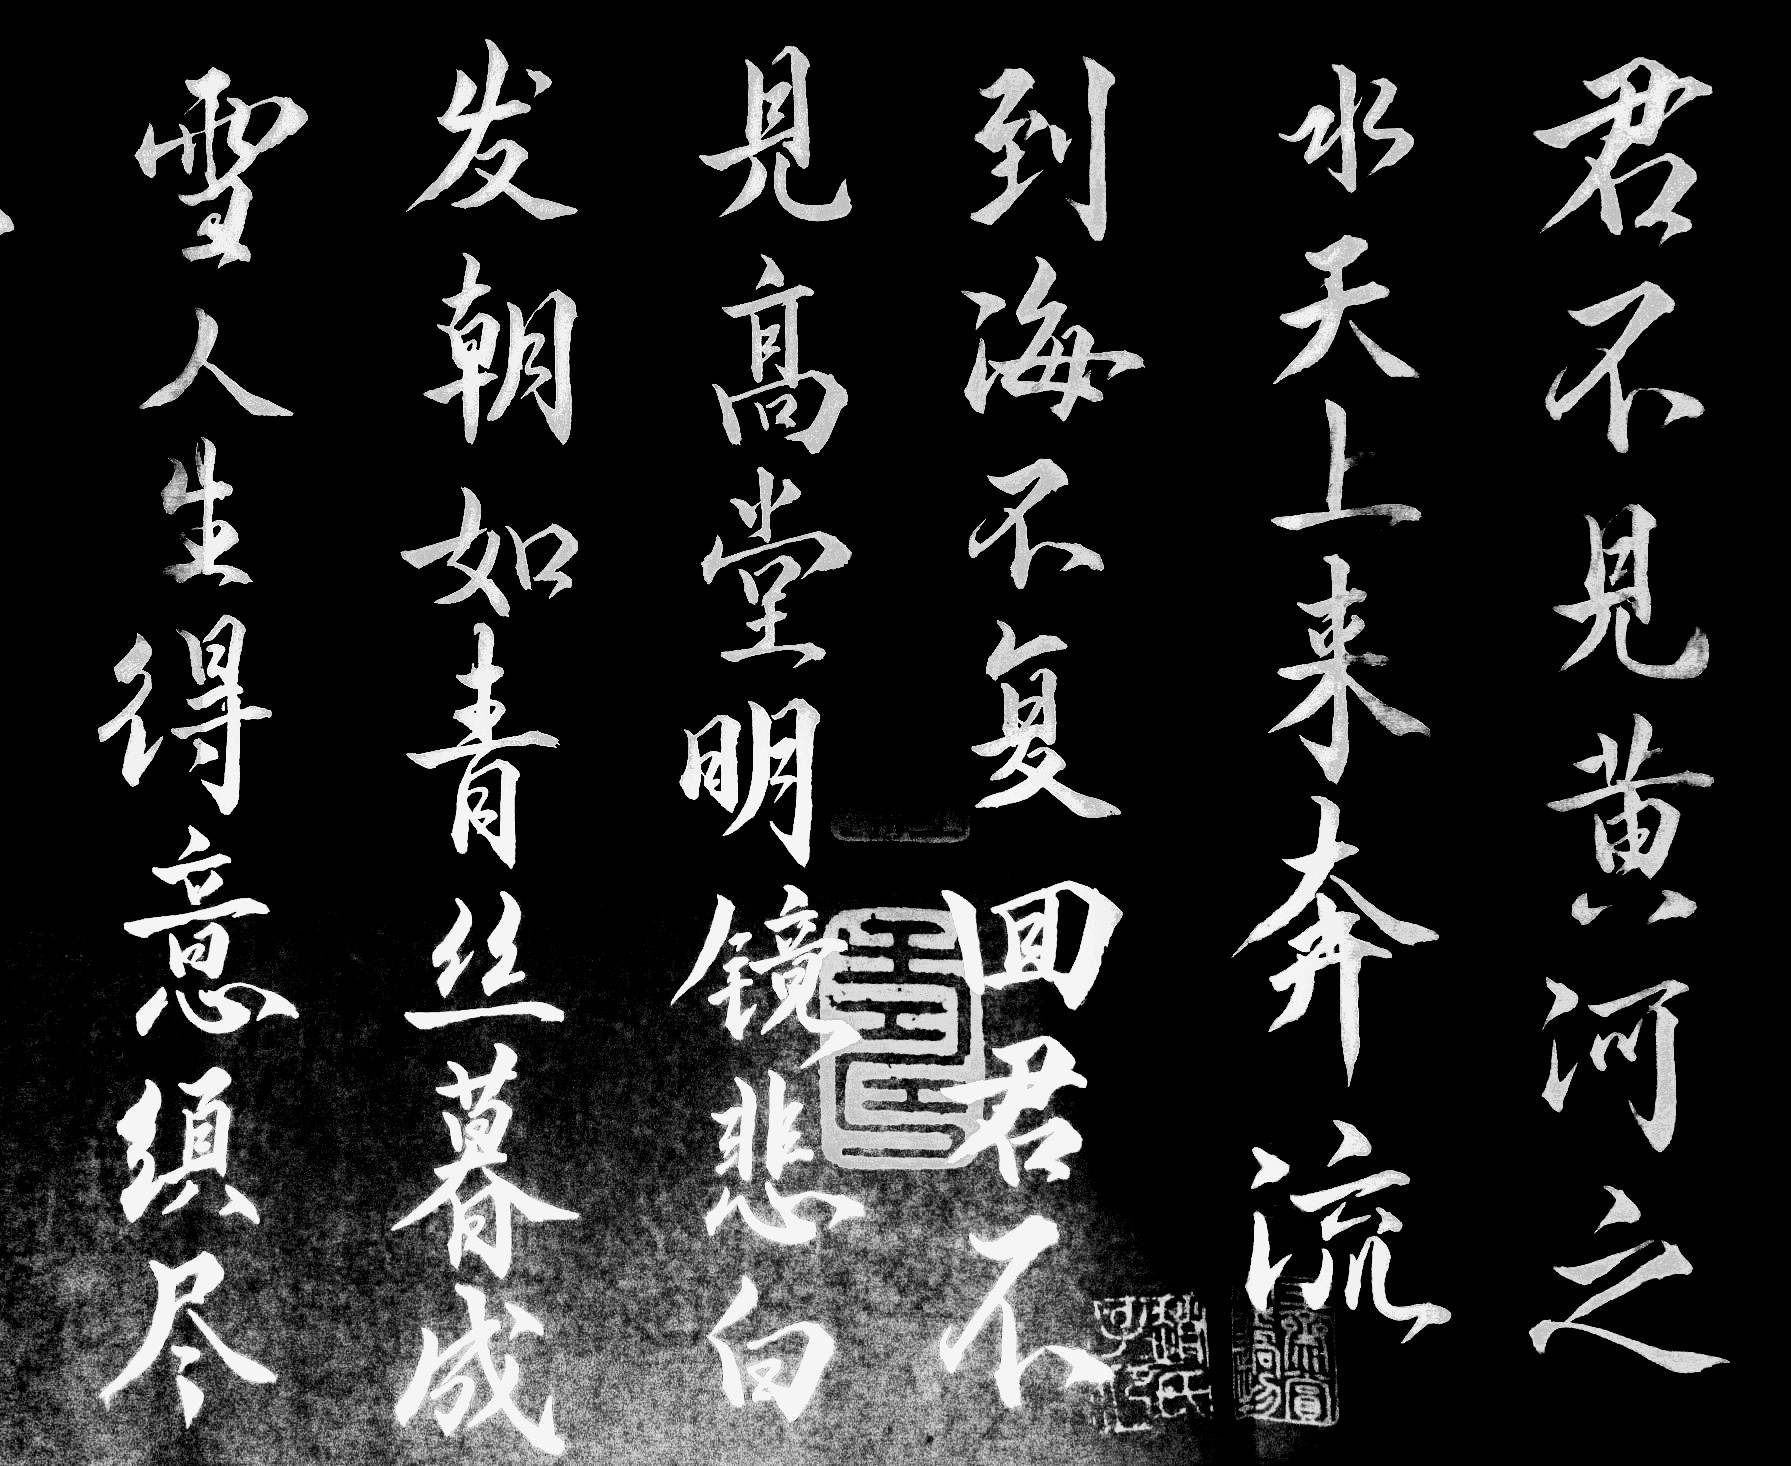 君不见黄河之
水天上来奔流
到海不复回君不
见高堂明镜悲白
发朝如青丝暮成
雪人生得意须尽